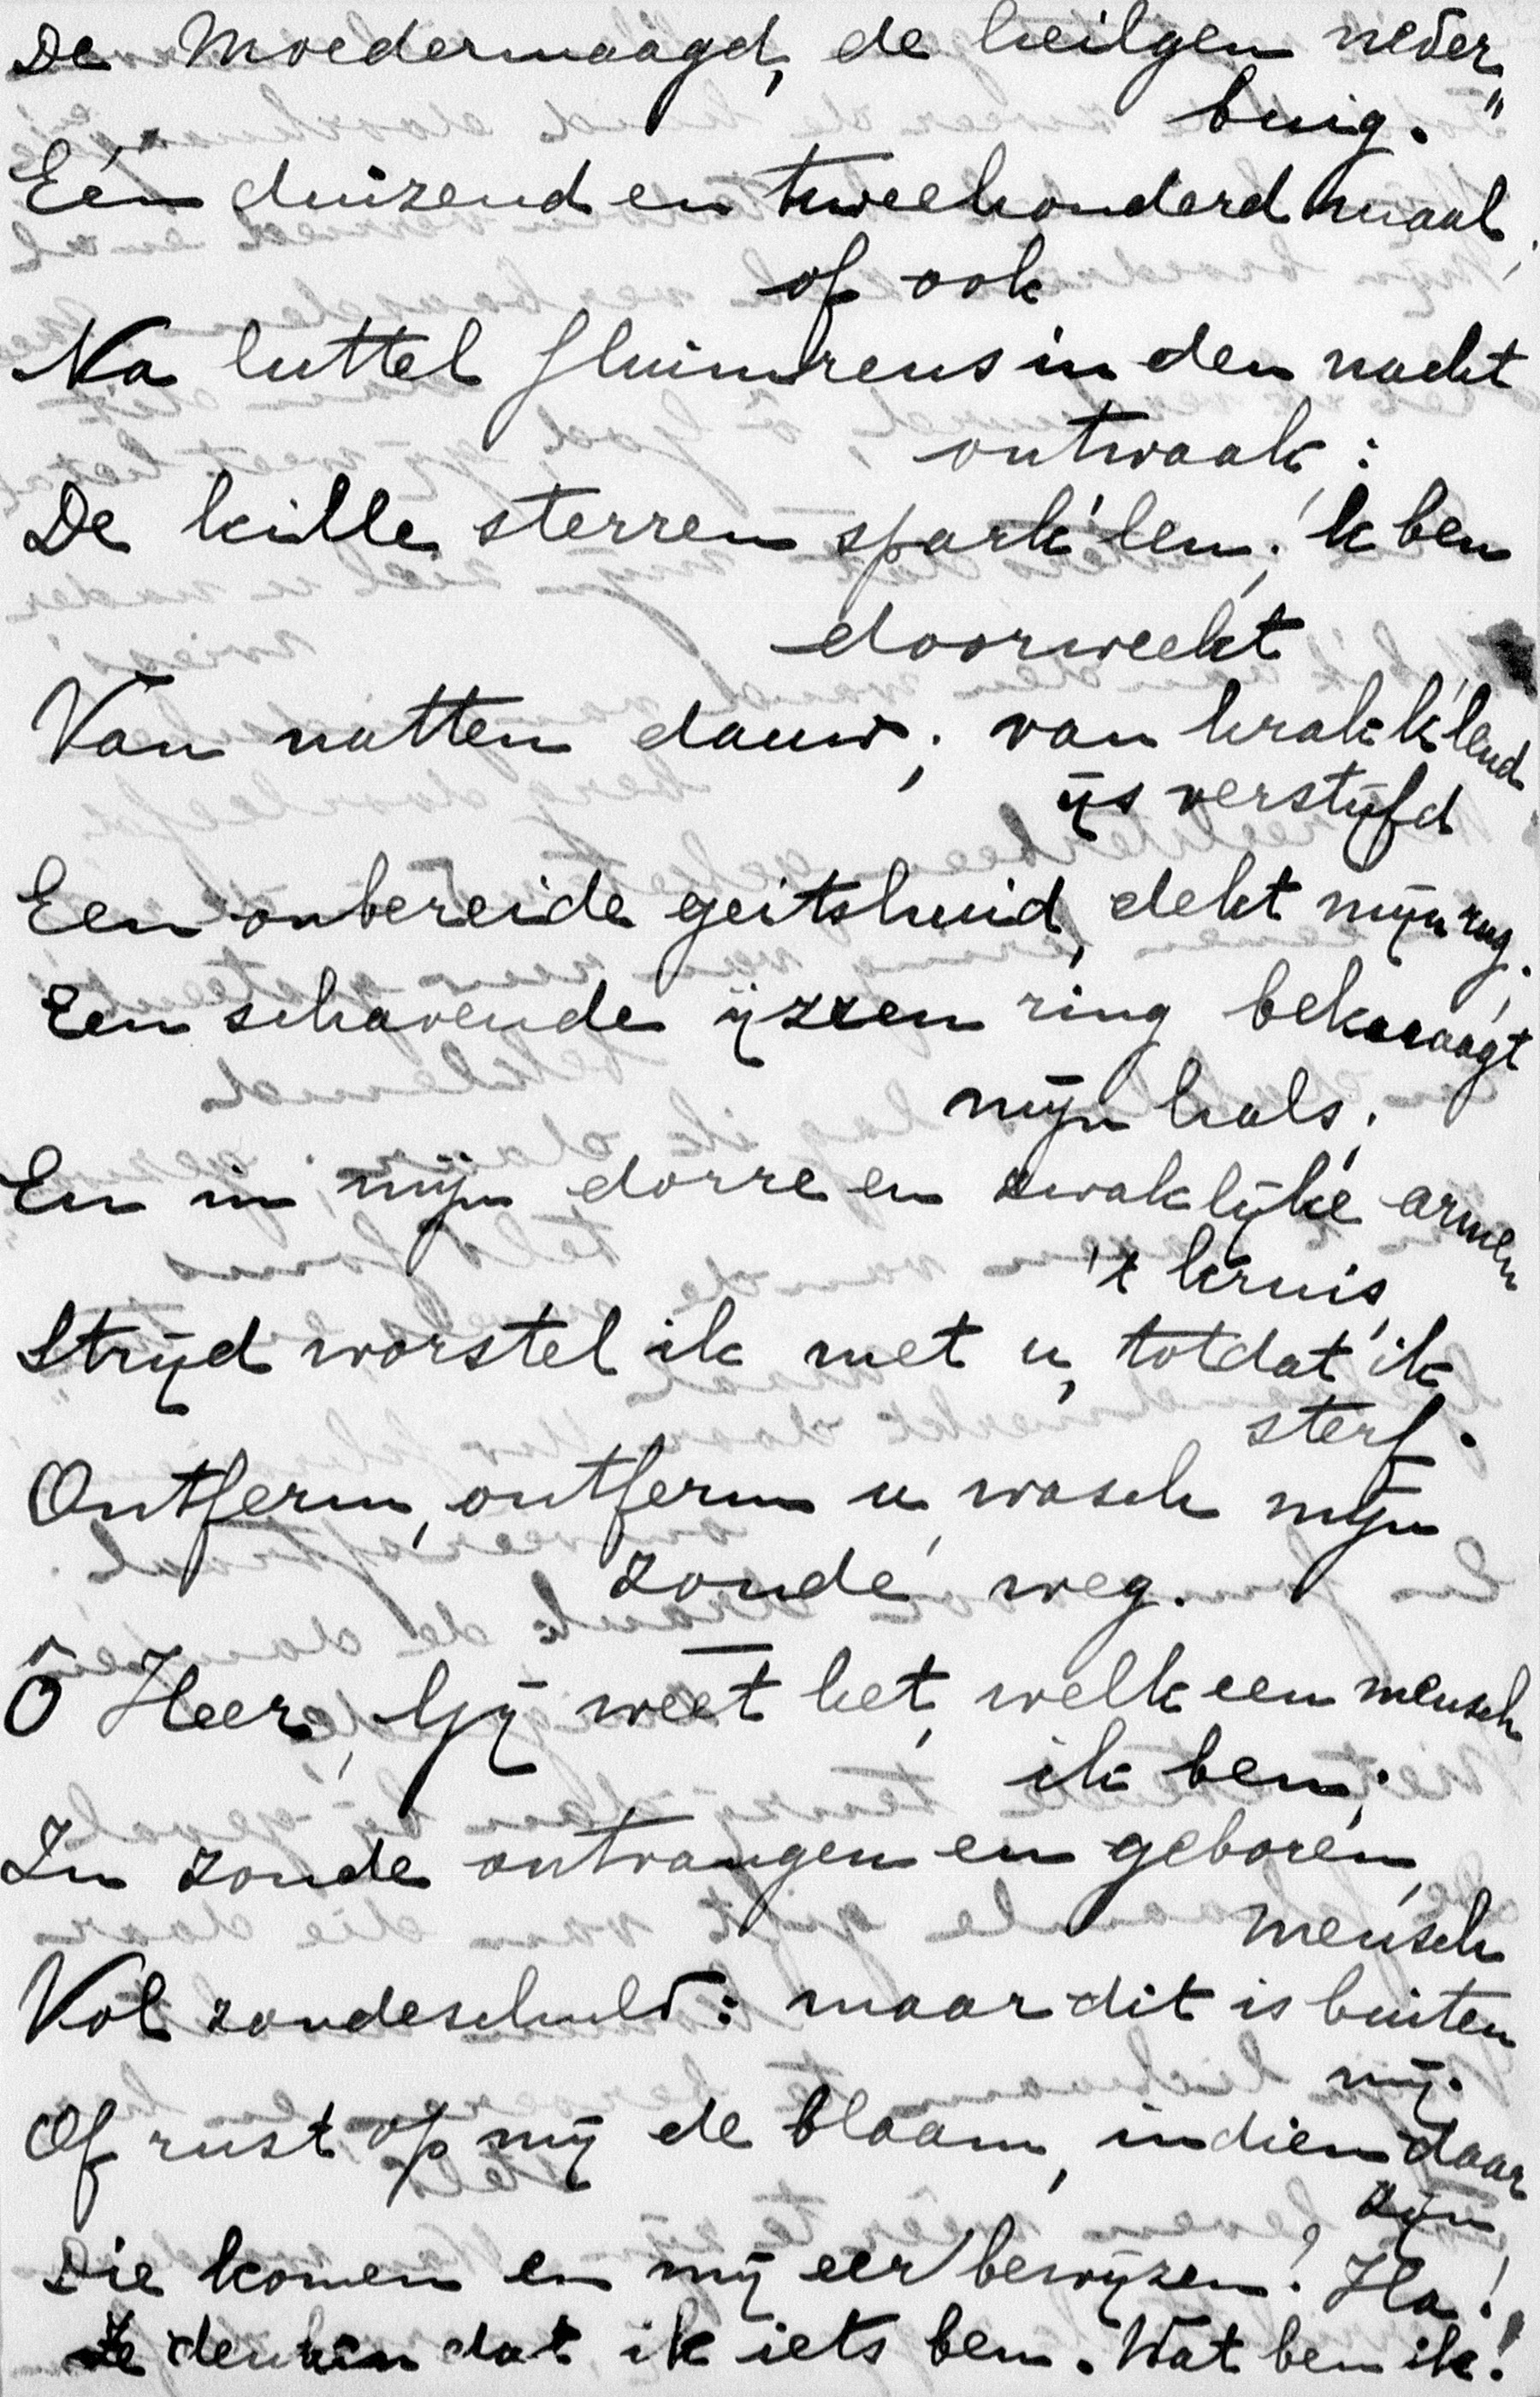 De Moedermaagd, de heilgen neder„
buig."
Eén duizend en tweehonderd maal,
of ook
Na luttel sluim'rens in den nacht
ontwaak;
De kille sterren spark'len; 'k ben
doorweekt
Van natten dauw; van krakk'lend
ijs verstijfd
Een onbereide geitshuid, dekt mijn rug;
Een schavende ijzren ring bekraagt
mijn hals;
En in mijn dorre en zwaklijke armen
't kruis,
Strijd worstel ik met u, totdat ik
sterf.
Ontferm, ontferm u, wasch mijn
zonde weg.
Ô Heer, Gij weet het, welk een mensch
ik ben;
In zonde ontvangen en geboren,
mensch
Vol zondeschuld: maar dit is buiten
mij.
Of rust op mij de blaam, indien daar
zijn
Die komen en mij eer bewijzen? Ha!
Ze denken dat ik iets ben. Wat ben ik!